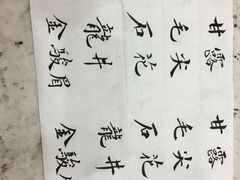 甘露
毛尖
石花
龍井
金駿眉
甘露
毛尖
石花
龍井
金駿眉